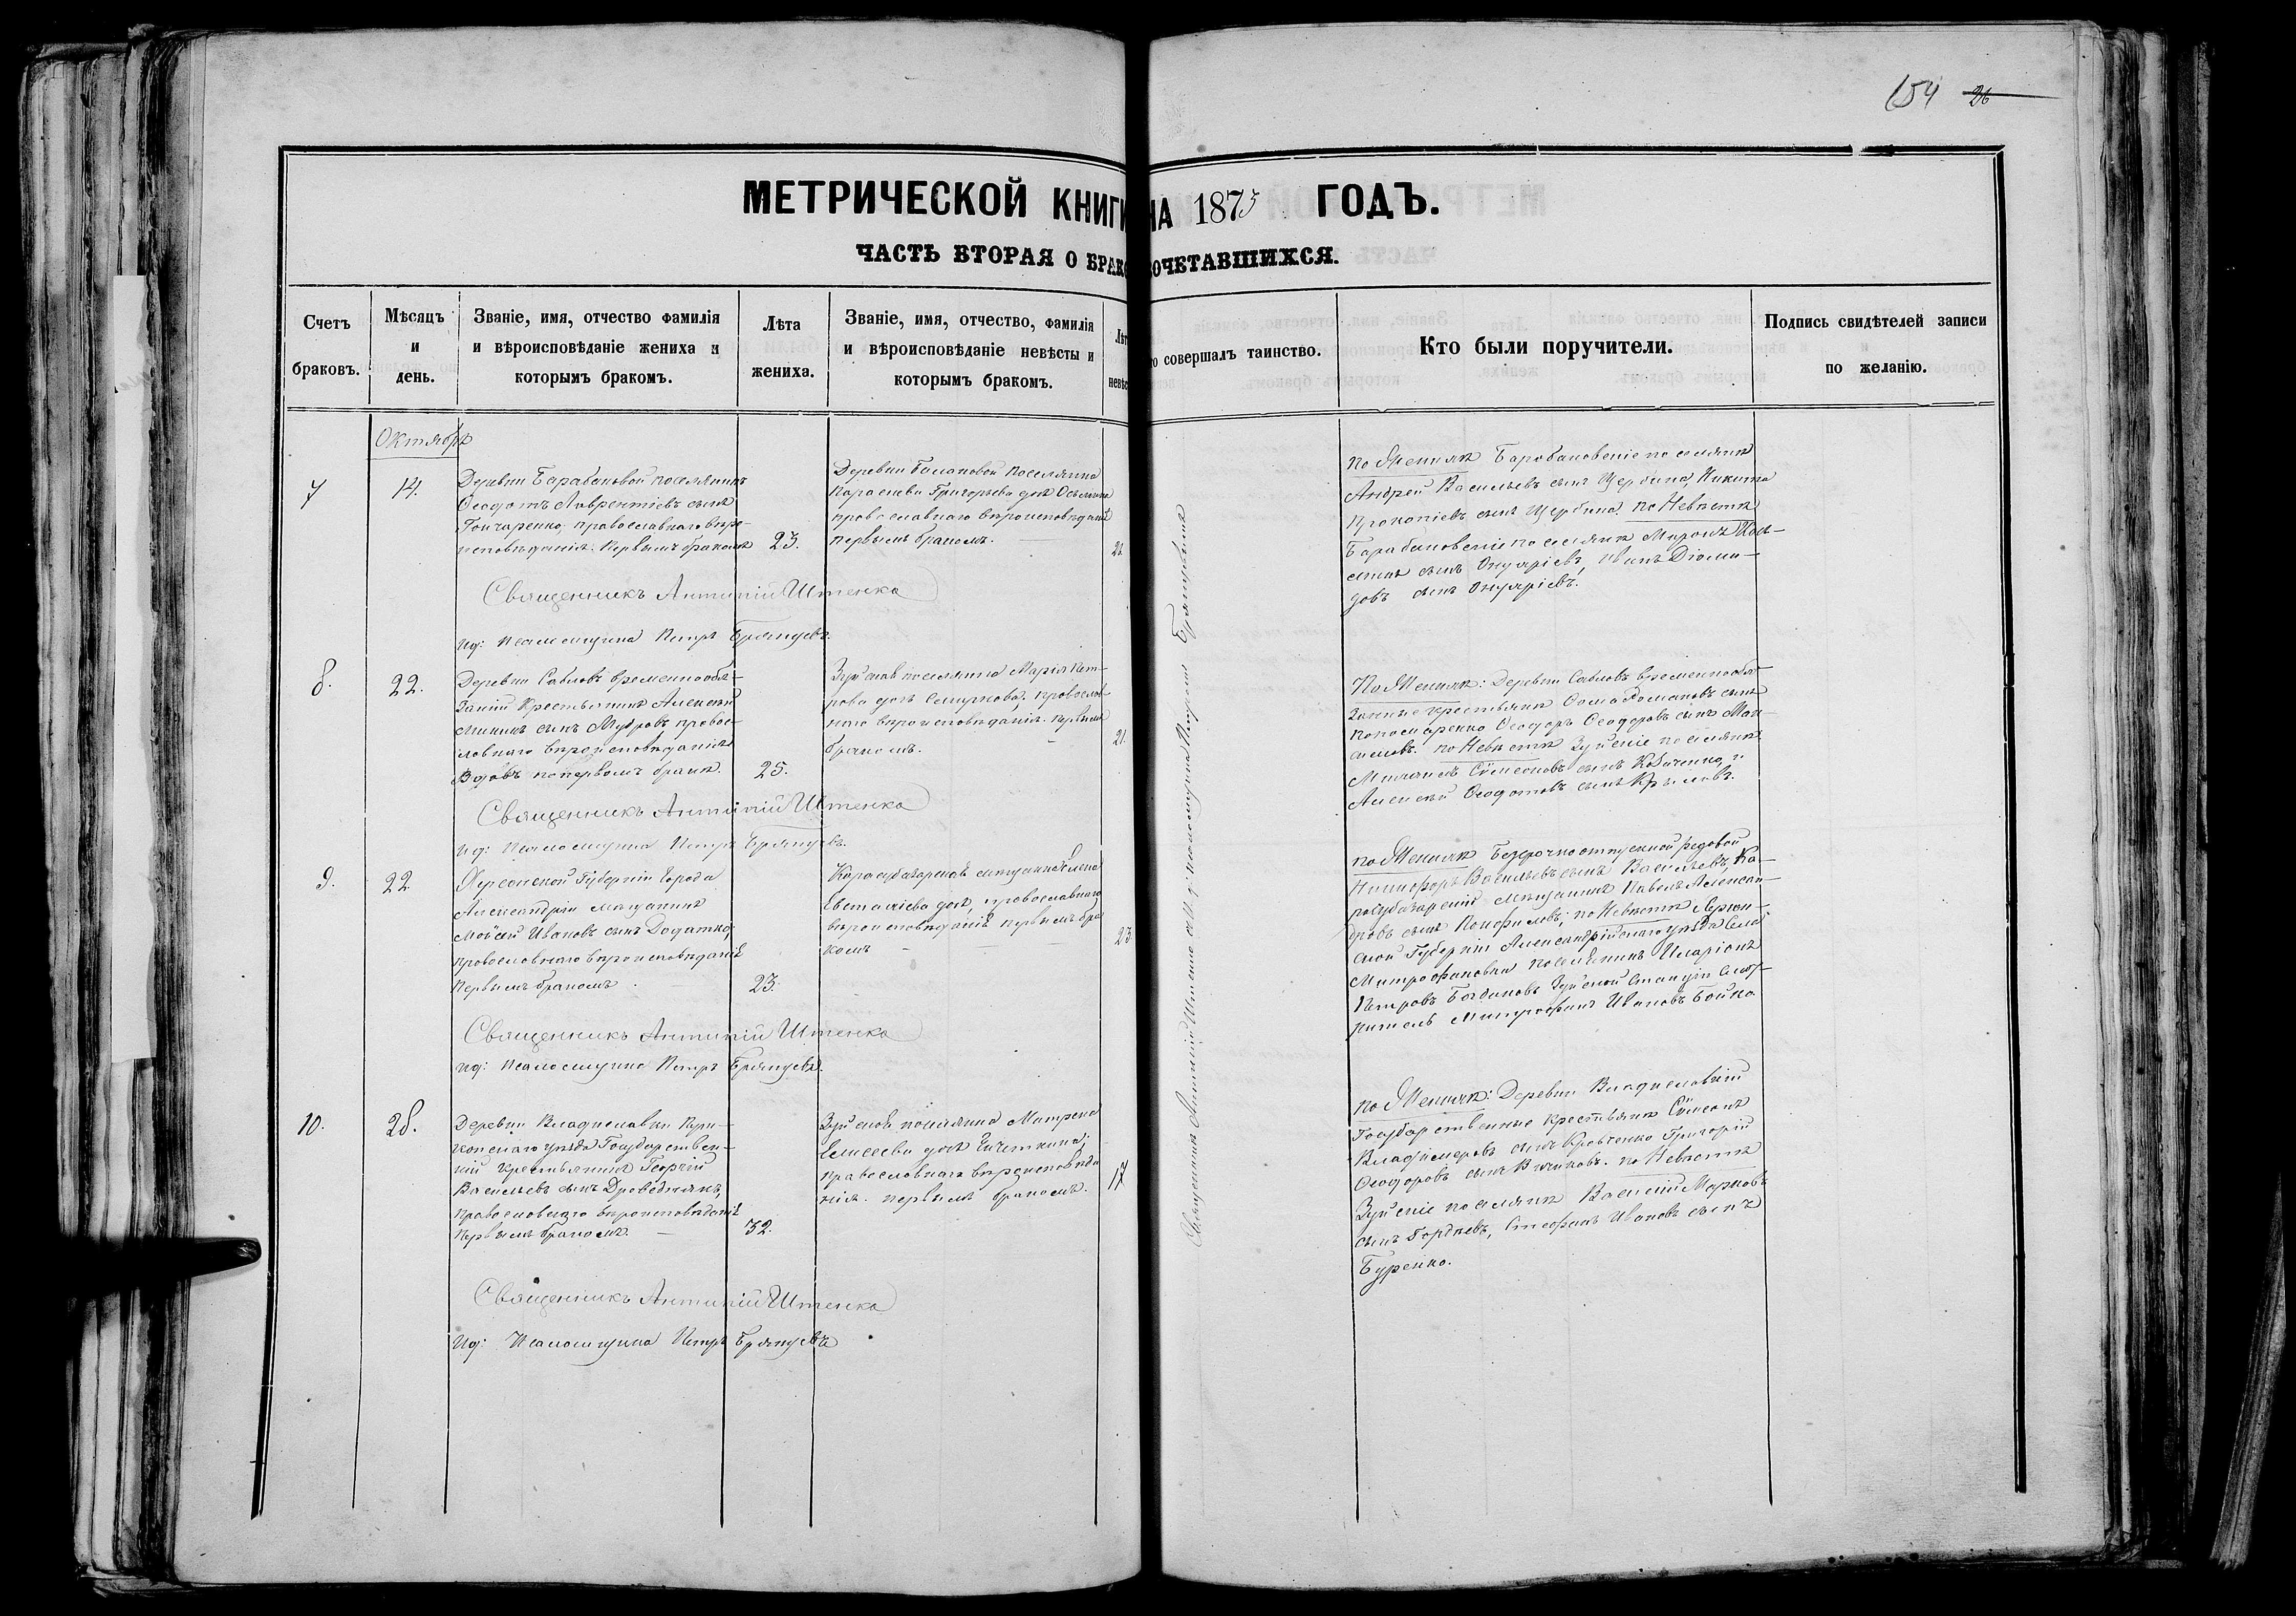 154 26
МЕТРИЧЕСКОЙ КНИГИ НА 1875 ГОДЪ.
ЧАСТЬ ВТОРАЯ О БРАКОСОЧЕТАВШИХСЯ.
Счетъ браковъ.
Мѣсяцъ и день.
Званіе, имя, отчество фамилія
и вѣроисповѣданіе жениха и
которымъ бракомъ.
Лѣта
жениха.
Званіе, имя, отчество, фамилія
и вѣроисповѣданіе невѣсты и
которымъ бракомъ.
Лѣт
невѣс
го совершалъ таинство.
Кто были поручители.
Подпись свидѣтелей записи
по желанію.
Октябрь
7
14.
Деревни Барабановой поселянинъ
Ѳеодотъ Лаврентіевъ сынъ
Гончаренко, православнаго вѣро-
исповѣданія. Первымъ бракомъ
23.
поселянка
Григорьева дочь
православнаго вѣроисповѣданія
первымъ бракомъ.
22
По Женихѣ Барабановскіе поселяне
Андрей Васильевъ сынъ Щербина Никита
Прокопіевъ сынъ Щербина. по Невѣстѣ
Барабановскіе поселяне Миронъ
сынъ
сынъ
Священникъ Антипій Штенко
Ид: Псаломщика Петръ Брянцевъ.
8.
22.
Деревни Сабловъ временнообя-
занный Крестьянинъ Алексѣй
сынъ православнаго вѣроисповѣданія
Вдовъ по первомъ бракѣ.
25.
Зуйская поселянка Марія Пет-
рова дочь Смирнова, православ-
наго вѣроисповѣданія. первымъ
бракомъ.
21.
По Женихѣ: Деревни Сабловъ временнообя-
занные крестьяне Ѳома Романовъ сынъ
Пономаренко Ѳеодоръ Ѳеодоровъ сынъ Мак-
симовъ. по Невѣстѣ Зуйскіе поселяне
Сѵмеоновъ сынъ и
Алексѣй Ѳеодотовъ сынъ Крыловъ.
Священникъ Антипій Штенко
Ид: Псаломщика Петръ Брянцевъ.
9.
22
Херсонской Губерніи города
Александріи мѣщанинъ
Мойсей Ивановъ сынъ Додатко,
православнаго вѣроисповѣданія
Первымъ бракомъ
23.
Карасубазарская мѣщанка Елена
Евстафіева дочь, православнаго
вѣроисповѣданія Первымъ бра
комъ
23
по Женихѣ Безсрочноотпускной рядовой
Никифоръ Васильевъ сынъ Васильевъ, Ка-
расубазарскій мѣщанинъ Павелъ Алексан-
дровъ сынъ Панфиловъ; по Невѣстѣ Херсон-
ской Губерніи Александрійскаго уѣзда Села
Митрофановки поселянинъ Иларіонъ
Петровъ Богдановъ Зуйской Станціи Смот-
ритель Митрофанъ Ивановъ Бойко
Священникъ Антипій Штенко
Ид: Псаломщика Петръ Брянцевъ.
10.
28.
Деревни Владиславки
уѣзда Государствен-
ный крестьянинъ Георгій
Васильевъ сынъ
Православнаго вѣроисповѣданія
Первымъ бракомъ.
32.
Зуйская поселянка Матрена
Елисеева дочь
православнаго вѣроисповѣда
нія. первымъ бракомъ.
17
по Женихѣ: Деревни Владиславки
Государственные крестьяне Сѵмеонъ
Владиміровъ сынъ Кравченко Григорій
Ѳеодоровъ сынъ по Невѣстѣ
Зуйскіе поселяне Василій Марковъ
сынъ Гордѣевъ, Стефанъ Ивановъ сынъ
Буренко.
Священникъ Антипій Штенко
Ид: Псаломщика Петръ Брянцевъ
Священникъ Антипій Штенко Брянцевымъ